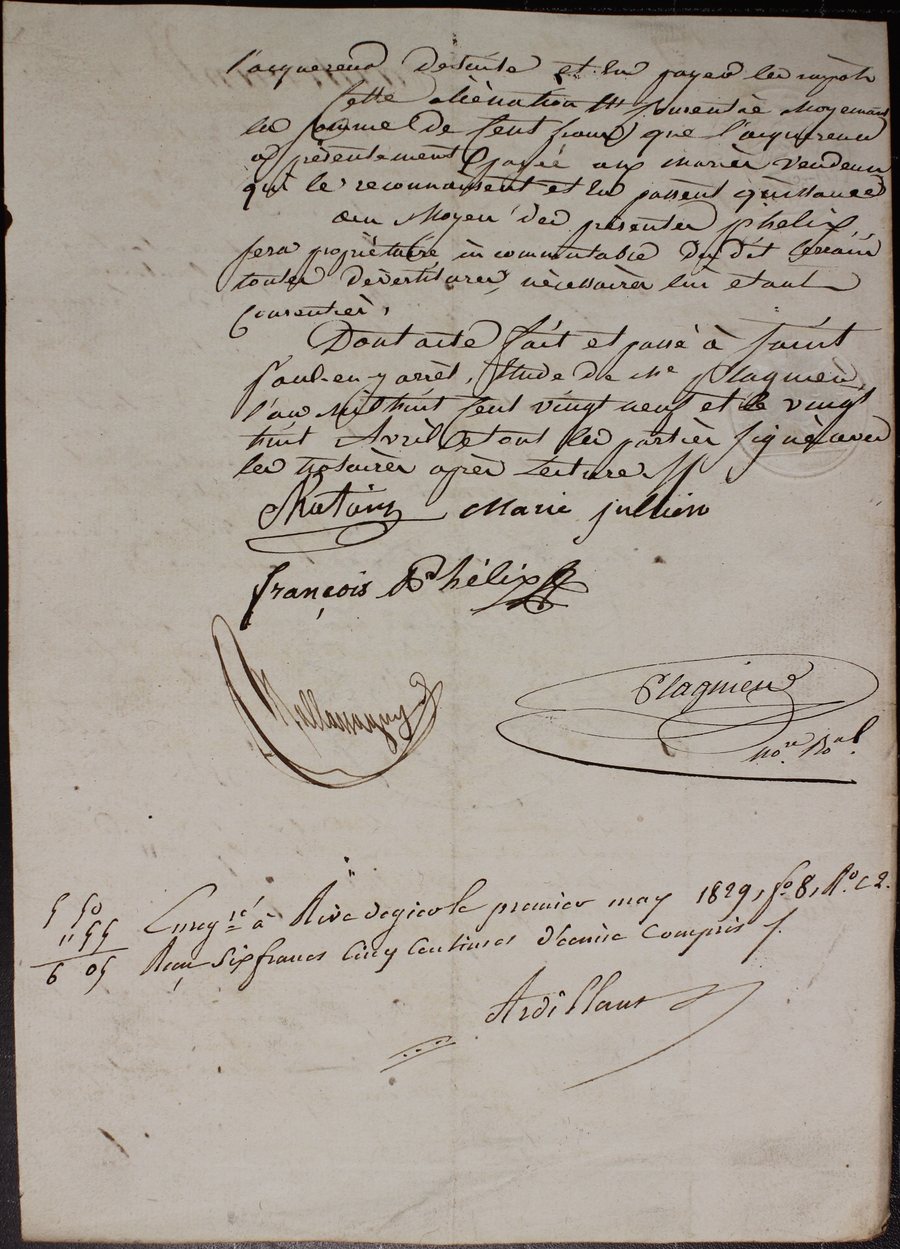 l'acquereur desuite et en payer les impots
Cette aliènation est consentie Moyenant
la somme de Cent francs que l'acquereur
a présentement payé aux mariés vendeurs
qui le reconnaissent et en passent quittance
au Moyen des présentes phelix
sera propriétaire incommutable du dit terrain
toutes dévestitures nécessaires lui etant
Consenties,
Dont acte fait et passé à Saint
paul-en-jarrèt, Etude de Me plagnieu,
l'an Mil huit Cent vingt neuf et le vingt
huit Avril et ont les parties signé avec
les Notaires après Lecture
Marie jullien
françois Phélix
Plagnieu
no.re Ro.al
5 50
" 55
6 05
Enreg.ré à Rivedegier le premier may 1829, fo. 8, Ro. c 2.
Reçu Six francs Cinq Centimes d'ecime Compris
Ardillaut